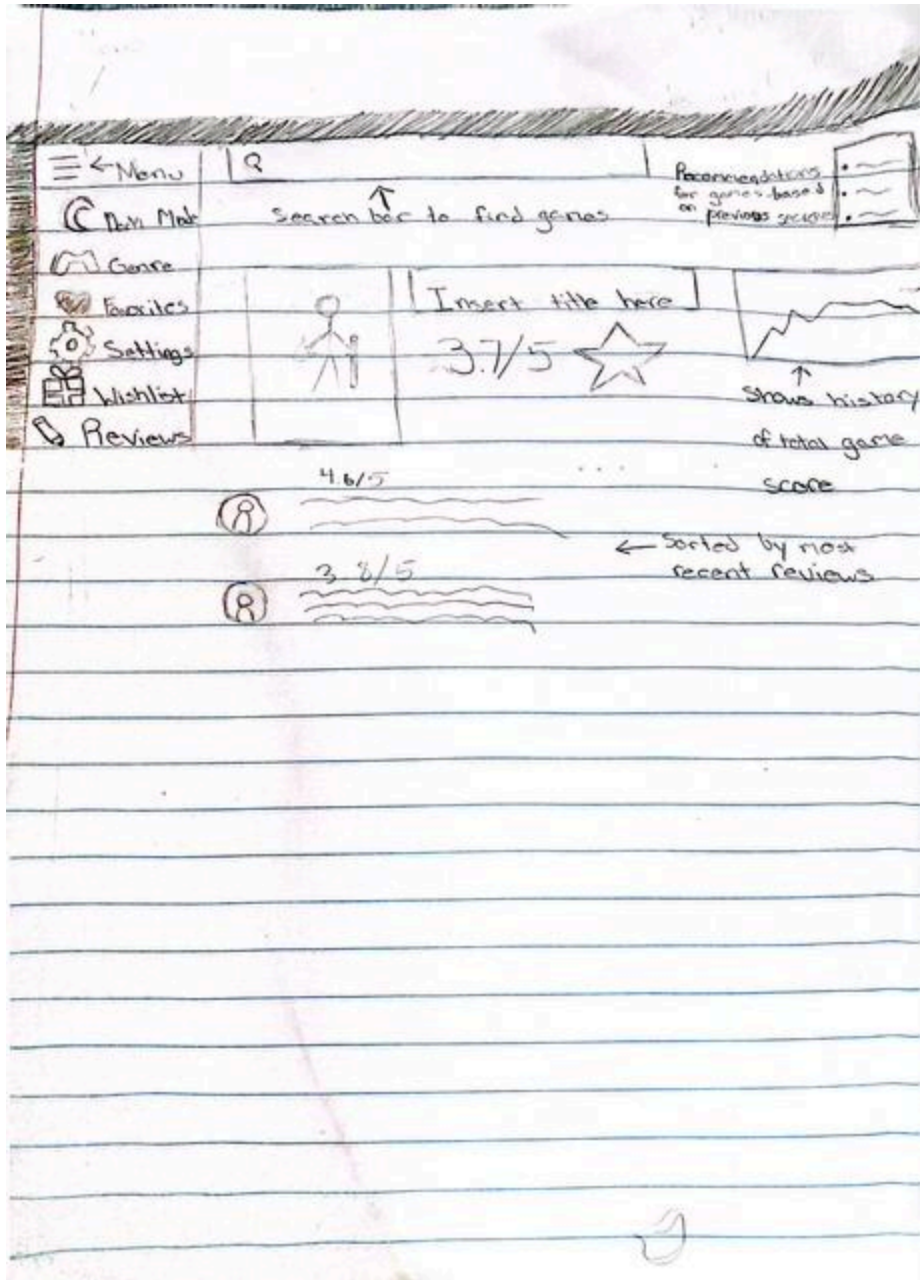 Menu
Mode
Genre
Favorites
Settings
Wishlist
Reviews
Search bar to find games
Recommendations
for games based
on previous
Insert title here
3.7/5
Shows history
of total game
score
4.6/5
...
← Sorted by most
recent reviews
3.8/5